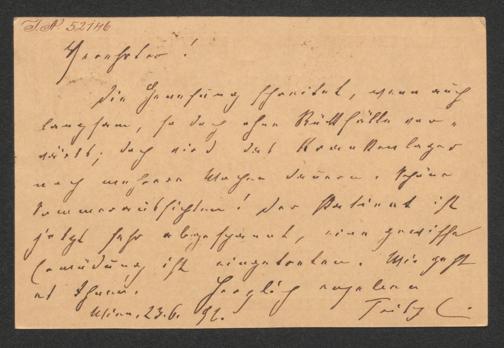 I.N. 52146
Verehrter!
Die Genesung schreitet, wenn auch
langsam, so doch ohne Rückfälle vor-
wärts; doch wird das Krankenlager
noch mehrere Wochen dauern. Schöne
Sommeraussichten! Der Patient ist
jetzt sehr abgespannt, eine gewisse
Ermüdung ist eingetreten. Wie geht
es Ihnen. Herzlich ergeben
Wien, 23.6. 92.